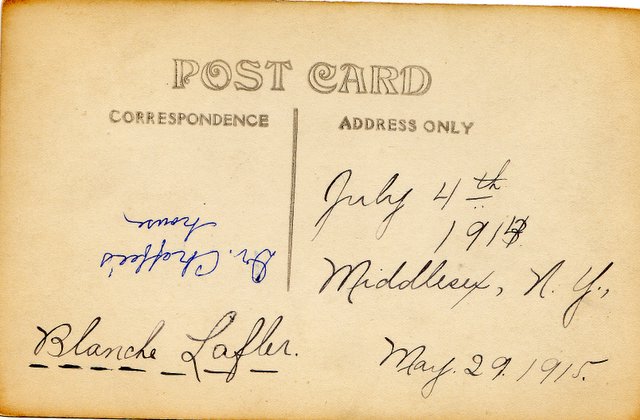 POST CARD
CORRESPONDENCE
ADDRESS ONLY
July 4th
Middlesex, N. Y.,
Dr. Chaffee's
house
Blanche Lafler.
May. 29. 1915.